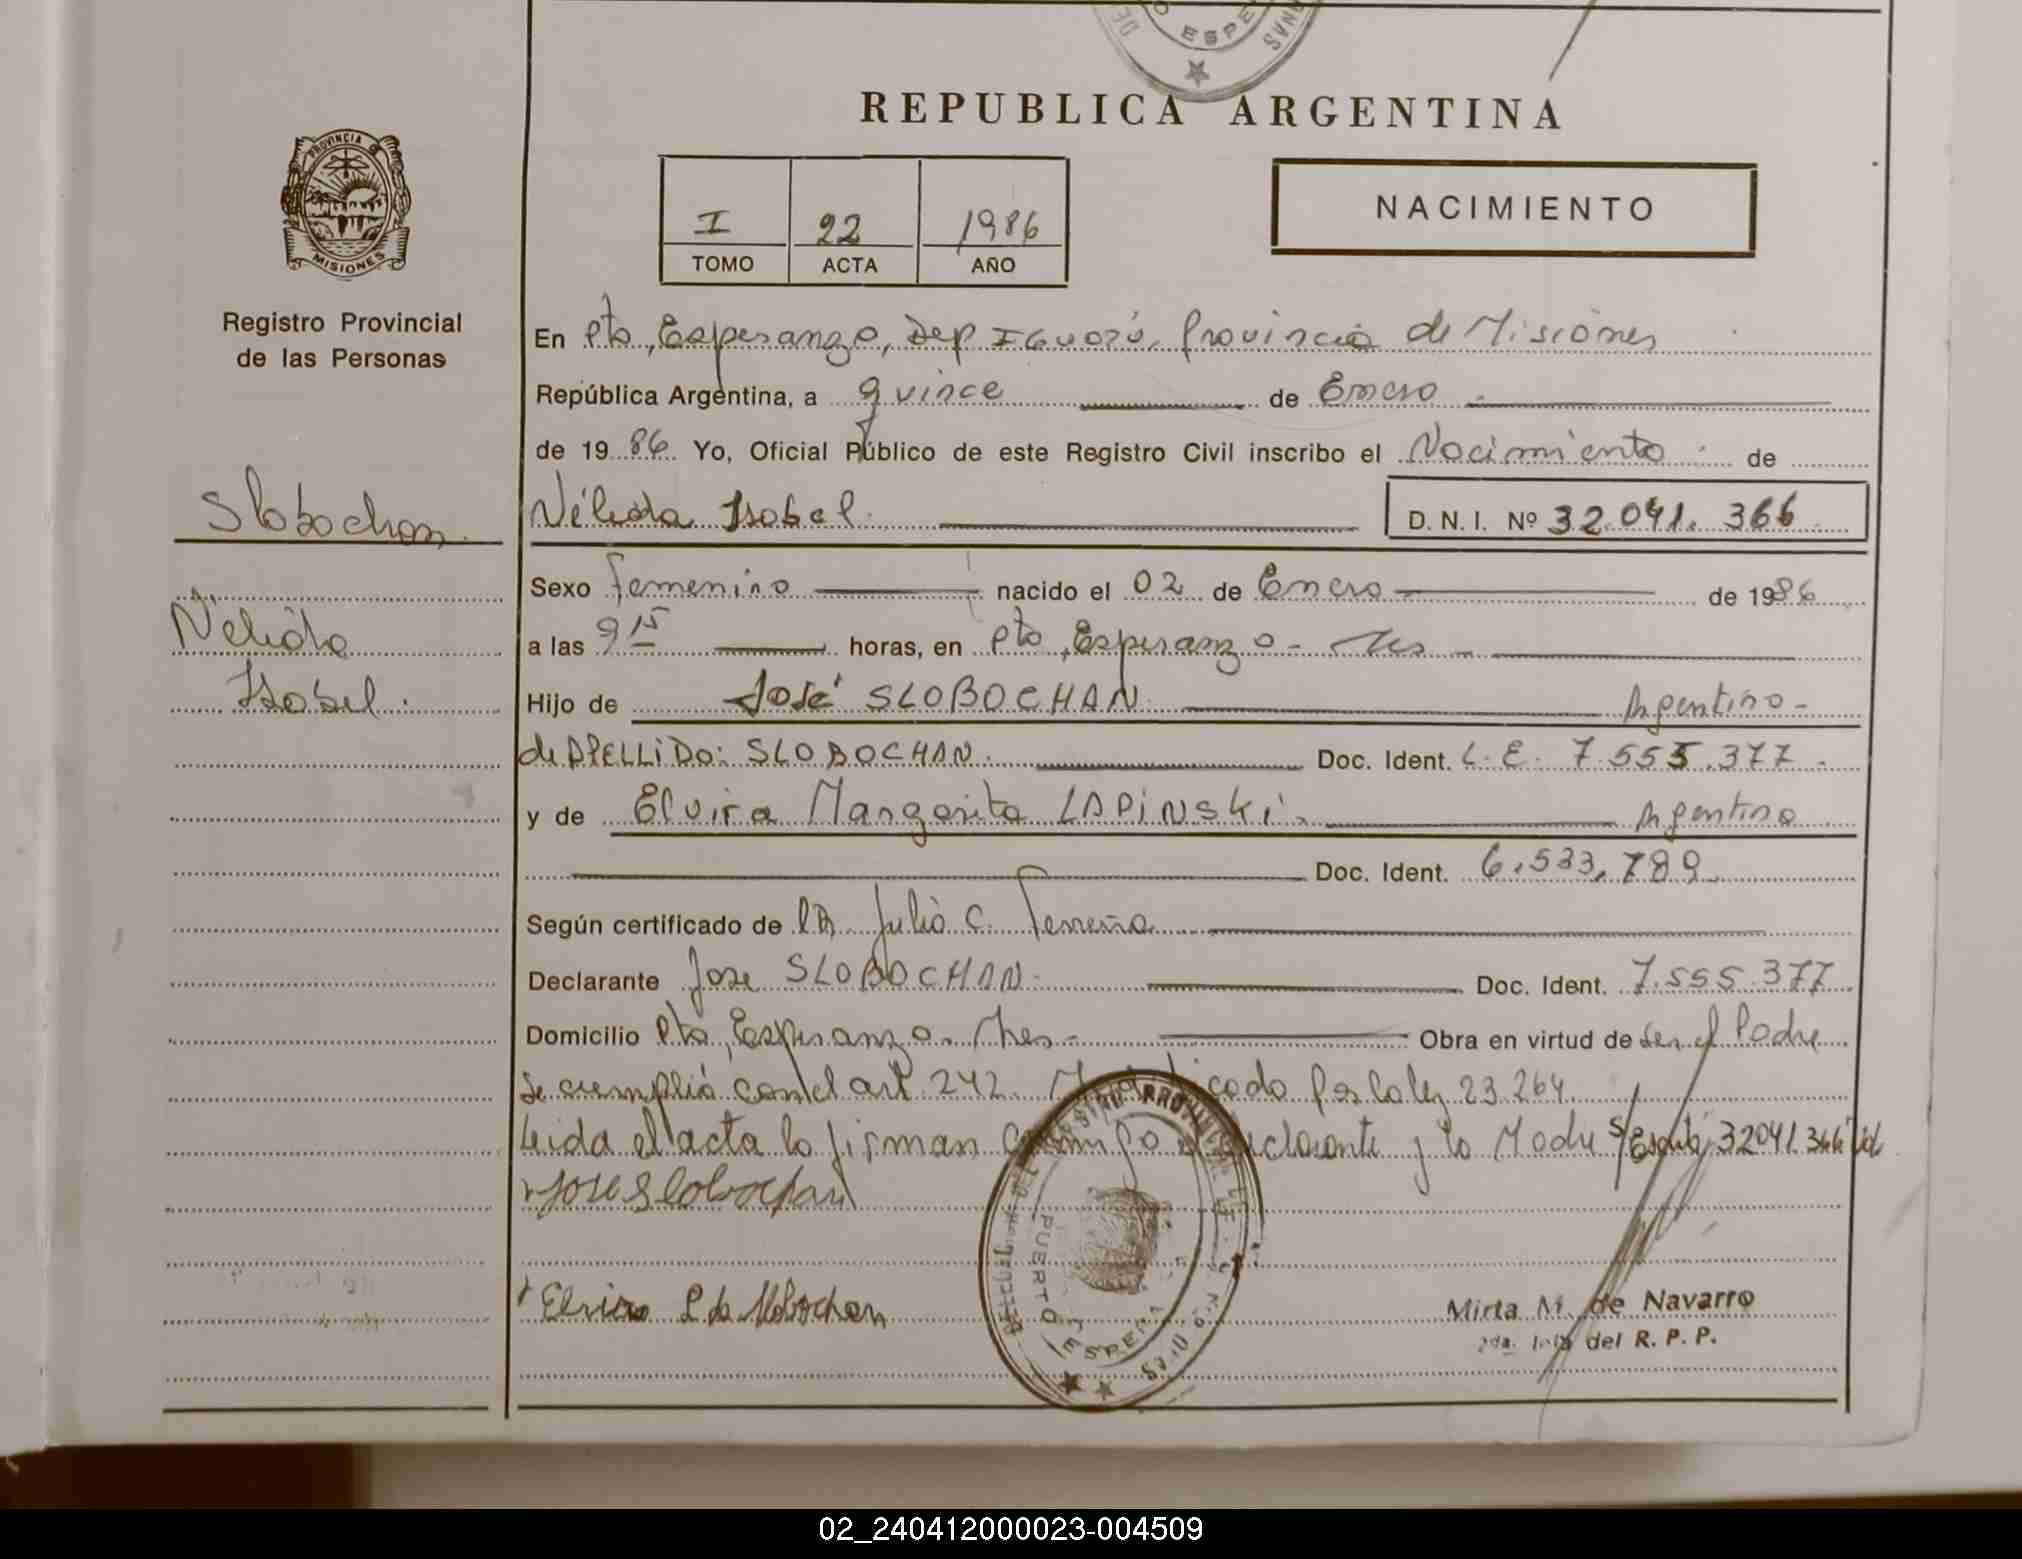 REPUBLICA ARGENTINA
PROVINCIA DE
MISIONES
Registro Provincial
de las Personas
I 22 1986
TOMO ACTA AÑO
NACIMIENTO
En Pto, Esperanza, Dep IGuazú, Provincia de Misiones
República Argentina, a quince de Enero
de 1986 Yo, Oficial Público de este Registro Civil inscribo el Nacimiento de
Slobochan.
Nélida Isabel. D. N. I. Nº 32.041.366
Sexo femenino nacido el 02 de Enero de 1986
Nélida
a las 9 15 horas, en Pto, Esperanza - Mes -
Isabel.
Hijo de José SLOBOCHAN. Argentino -
de APELLiDO: SLOBOCHAN. Doc. Ident. L. E. 7.555.377.
y de Elvira Margarita LAPiNSki. Argentina
Doc. Ident. 6.533.789
Según certificado de Julio C.
Declarante Jose SLOBOCHAN. Doc. Ident. 7.555.377
Domicilio Pto, Esperanza. Mes - Obra en virtud de ser el Padre
Se cumplió con el art 242. Modificado Por la ley 23.264.
Leida el acta la firman conmigo el declarante y la Madre S/ 32041.366
Jose Slobochan
PUERTO ESPERANZA
Elvira L de Slobochan
Mirta M. de Navarro
2da. del R. P. P.
02_240412000023-004509